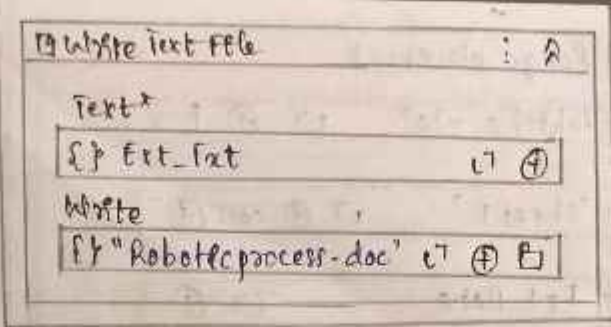 Write Text File
Text*
{} Ext_Txt
Write
{} "Roboticprocess-doc"